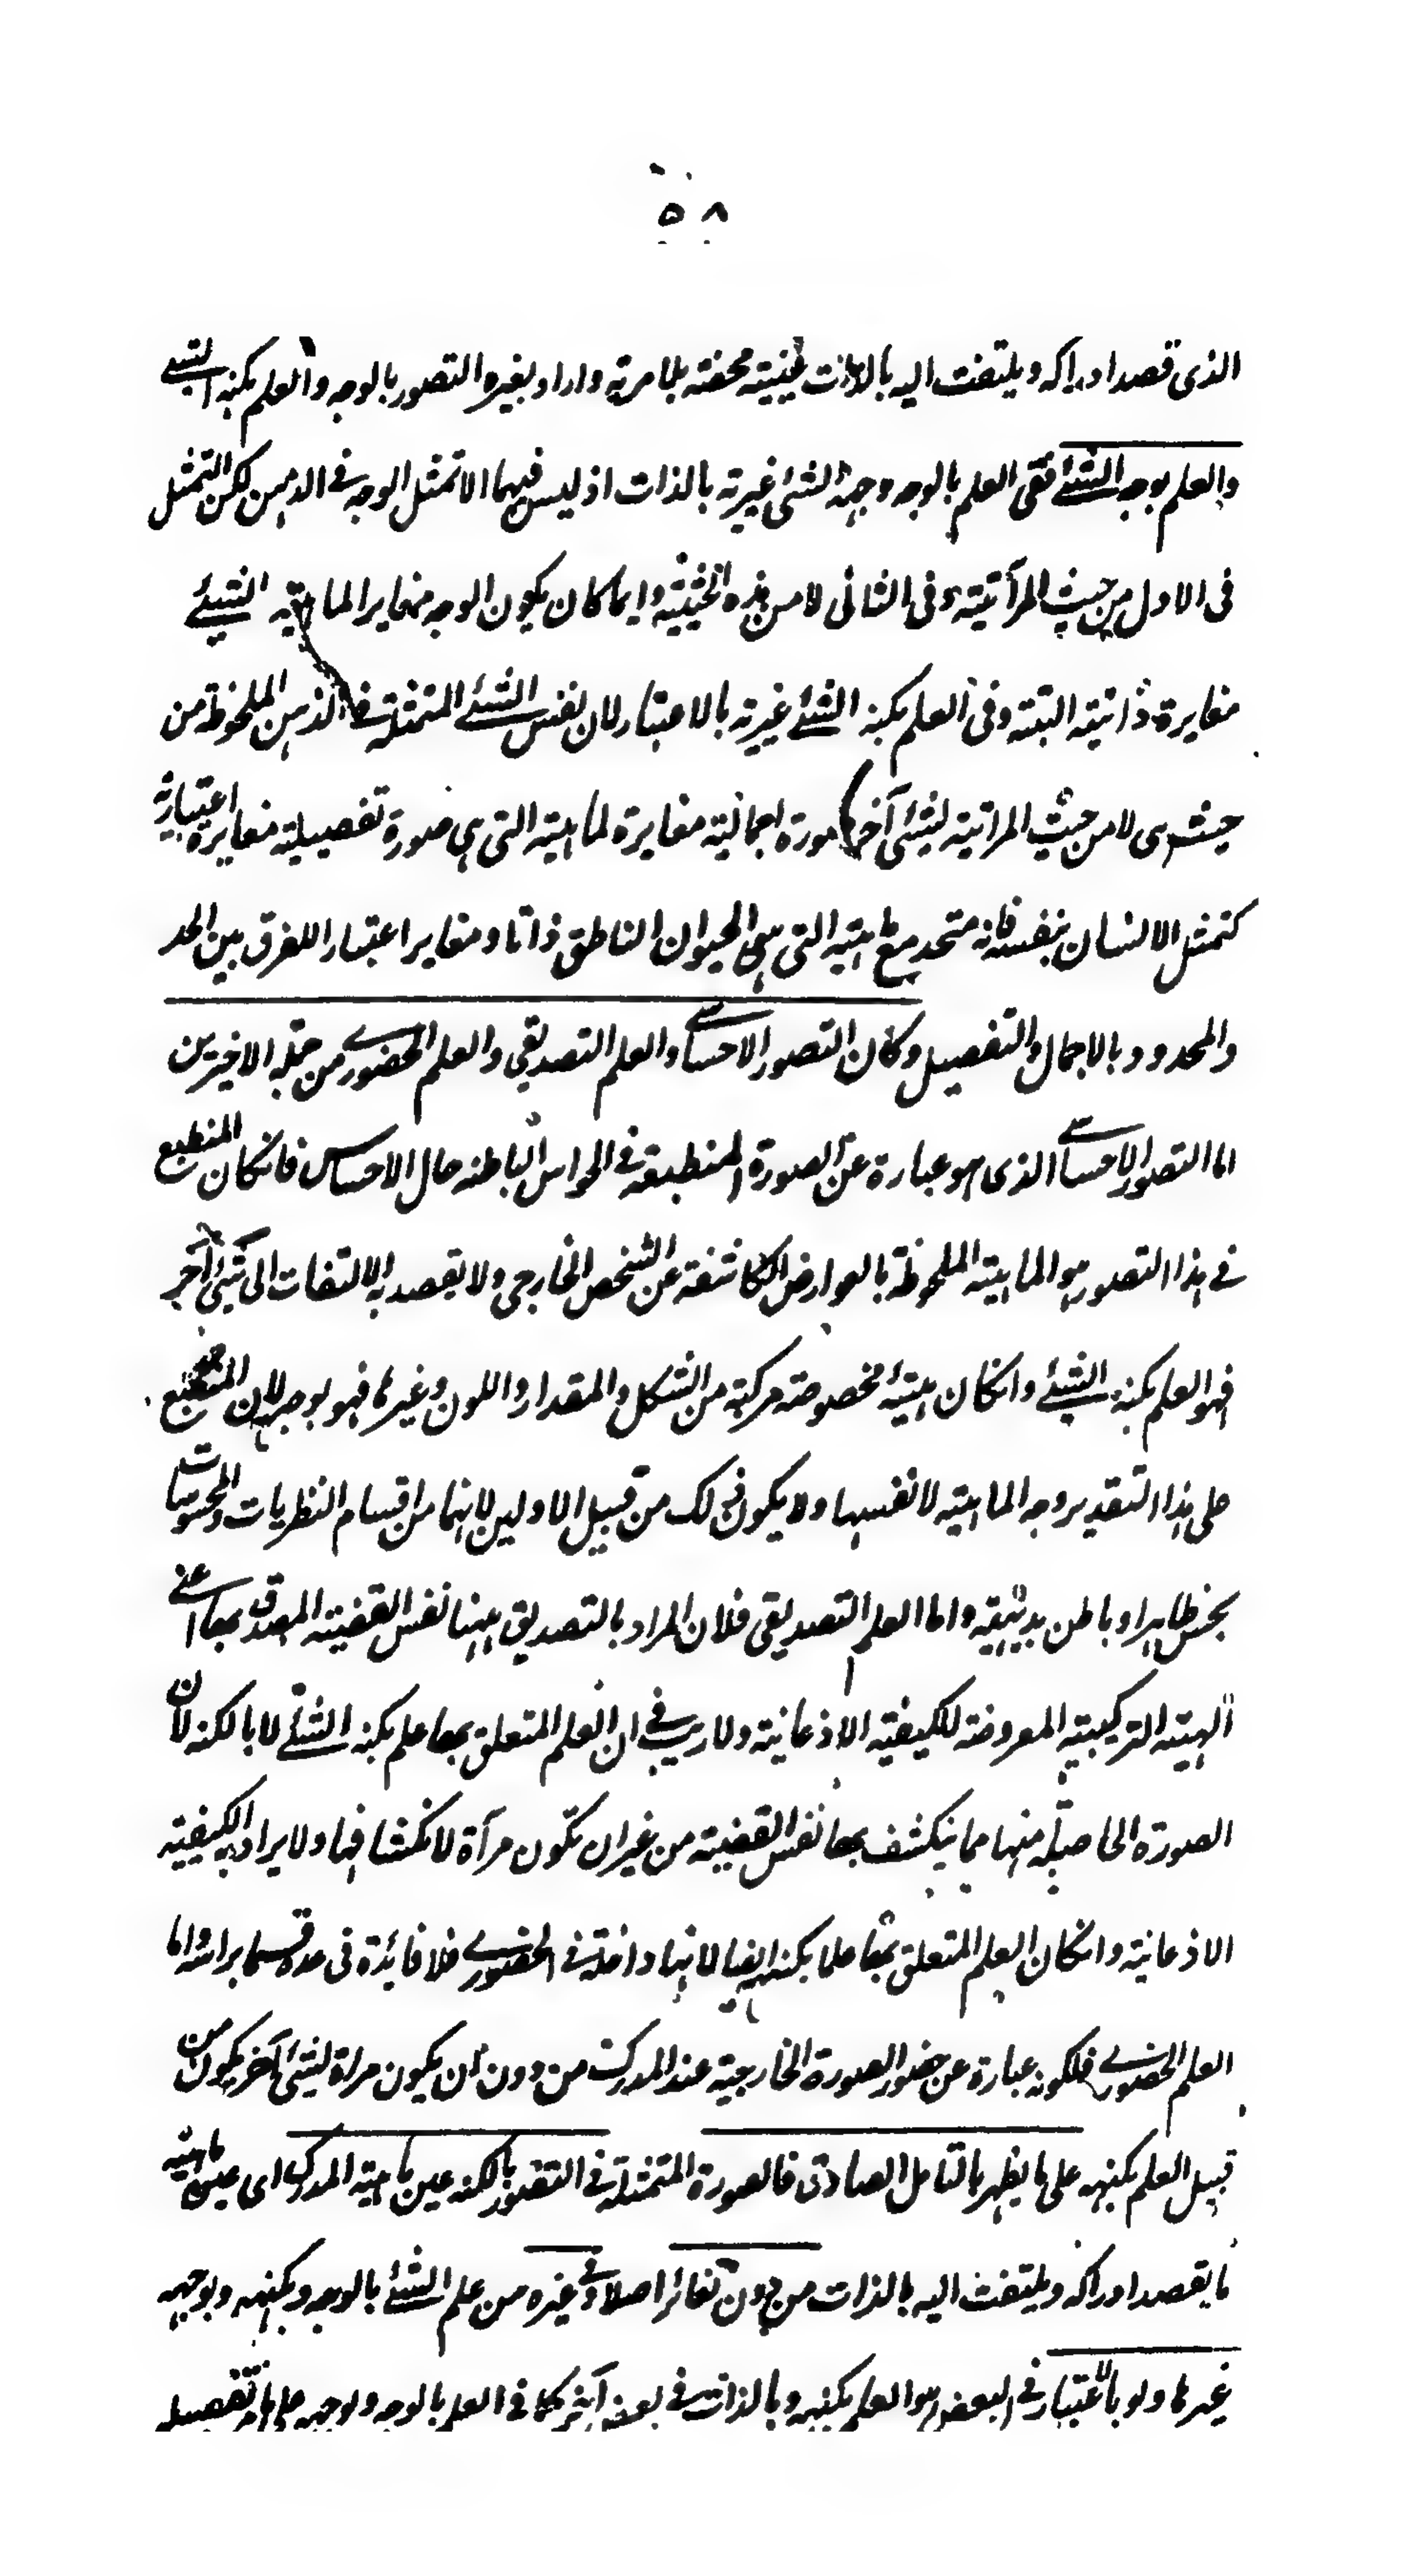 ٥٨
الذى قصد ادراكه ويلتفت اليه بالذات عينية محضة بلا مرية واراد بغيره التصور بالوجه والعلم بكنه الشئ
والعلم بوجه الشئ ففى العلم بالوجه وجهة الشئ غيرية بالذات اذ ليس فيهما الا تمثل الوجه فى الذهن لكن التمثل
فى الاول من حيث المرآتية وفى الثانى لا من هذه الحيثية وايما كان يكون الوجه مغايرا لماهية الشئ
مغايرة ذاتية البتة وفى العلم بكنه الشئ غيرية بالاعتبار لان نفس الشئ المتمثلة فى الذهن الملحوظة من
حيث هى لا من حيث المراتية لشئ آخر صورة اجمالية مغايرة لماهيته التى هى صورة تفصيلية مغايرة اعتبارية
كتمثل الانسان بنفسه فانه متحد مع ماهيته التى هى الحيوان الناطق ذاتا ومغاير اعتبارا للفرق بين الحد
والمحدود بالاجمال والتفصيل وكان التصور الاحساسے والعلم التصديقى والعلم الحضورے من جملة الاخيرين
اما التصور الاحساسے الذى هو عبارة عن الصورة المنطبعة فى الحواس الباطنه حال الاحساس فانكان المنطبع
فے هذا التصور هو الماهية الملحوظة بالعوارض الكاشفة عن الشخص الخارجى ولا يقصد به الالتفات الى شئ آخر
فهو العلم بكنه الشئ وانكان هيئة مخصوصة مركبة من الشكل والمقدار واللون وغيرها فهو بوجهه لان المنطبع
على هذا التقدير وجه الماهية لا نفسها ولا يكون ذلك من قبيل الاولين لانهما من اقسام النظريات والمحسوسات
بحس ظاهر او باطن بديهية واما العلم التصديقى فلان المراد بالتصديق ههنا نفس القضية المصدق بها اعنے
الهيئة التركيبية المعروضة للكيفية الاذعانية ولا ريب فى ان العلم المتعلق بها علم بكنه الشئ لا بالكنه لان
الصورة الحاصلة منها مما ينكشف بها نفس القضية من غير ان تكون مرآة لانكشافها ولا يراد به الكيفية
الاذعانية وانكان العلم المتعلق بها علما بكنهه ايضا لانها داخلة فى الحضورے فلا فائدة فى عده قسما براسه واما
العلم الحضورے فلكونه عبارة عن حضور الصورة الخارجية عند المدرك من دون ان يكون مراة لشئ آخر يكون من
قبيل العلم بكنهه على ما يظهر بالتامل الصادق فالصورة المتمثلة فى التصور بالكنه عين ماهية المدرك اى عين ماهية
ما يقصد ادراكه ويلتفت اليه بالذات من دون تغائر اصلا وفى غيره من علم الشئ بالوجه وبكنهه وبوجهه
غيرها ولو بالاعتبار فى البعض هو العلم بكنهه وبالذات فى بعض آخر كما فى العلم بالوجه وبوجهه على ما تفصيله